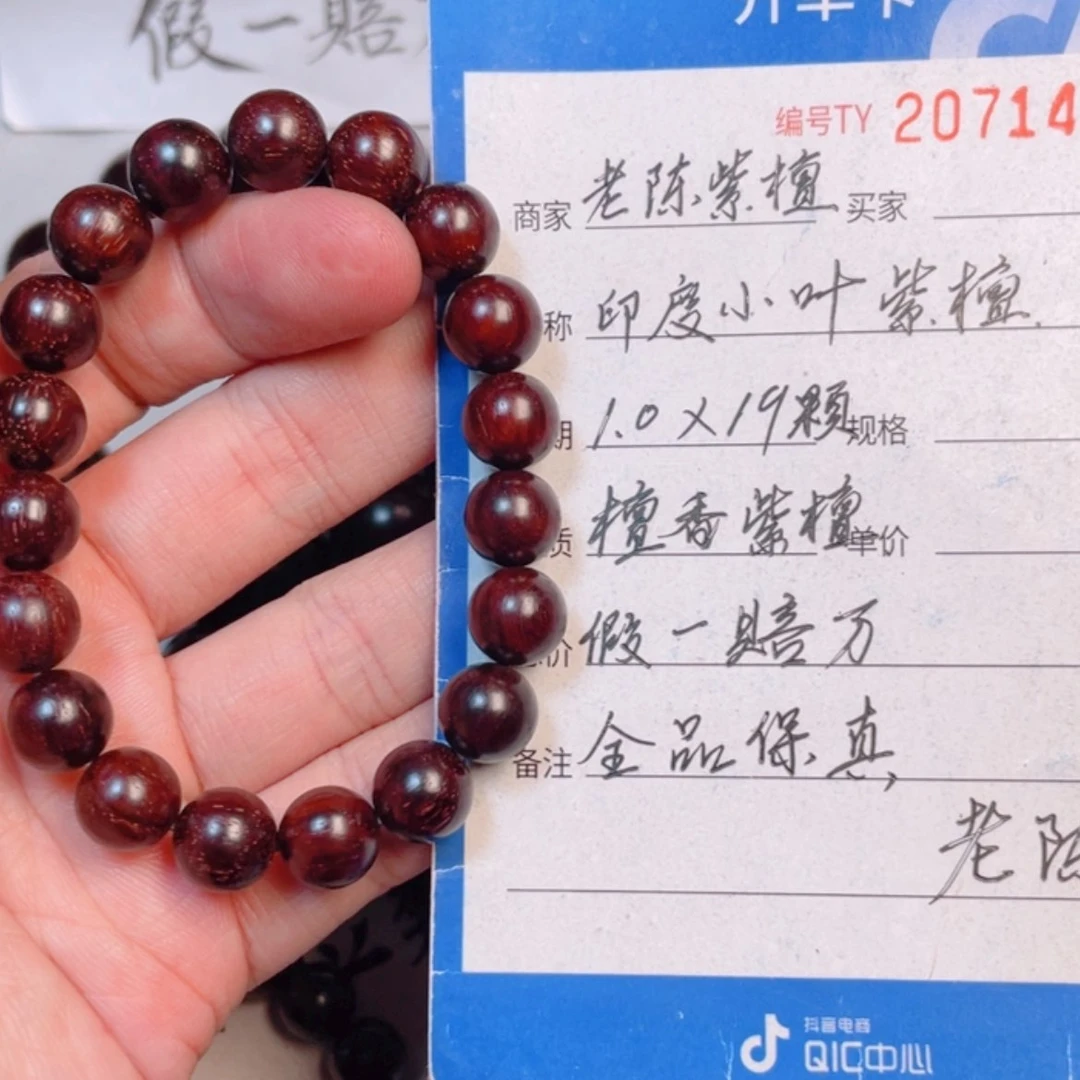 假一賠
编号TY 20714
商家 老陈紫檀 买家
称 印度小叶紫檀
期 1.0×19颗 规格
质 檀香紫檀 单价
价 假一賠万
备注 全品保真,
老陈
抖音电商
QIC中心